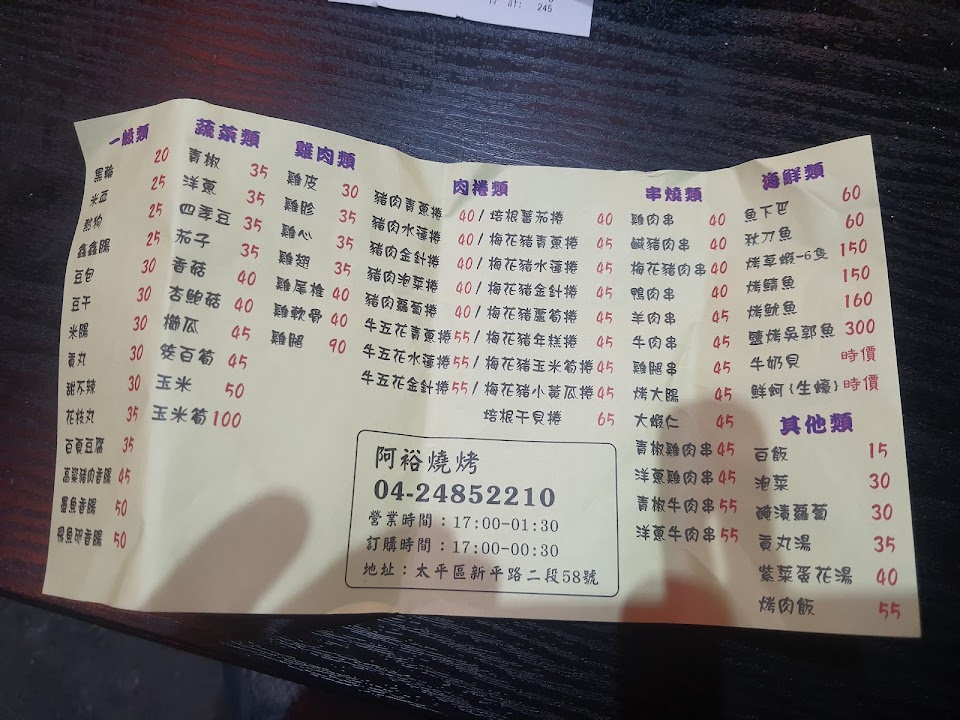 計: 245
一般類
黑輪 20
米血 25
熱狗 25
鑫鑫腸 25
豆包 30
豆干 30
米腸 30
貢丸 30
甜不辣 30
花枝丸 35
百頁豆腐 35
高粱豬肉香腸 45
墨魚香腸 50
飛魚卵香腸 50
蔬菜類
青椒 35
洋蔥 35
四季豆 35
茄子 35
香菇 40
杏鮑菇 40
櫛瓜 45
筊白筍 45
玉米 50
玉米筍 100
雞肉類
雞皮 30
雞胗 35
雞心 35
雞翅 35
雞尾椎 40
雞軟骨 40
雞腿 90
肉捲類
豬肉青蔥捲 40 / 培根蕃茄捲 40
豬肉水蓮捲 40 / 梅花豬青蔥捲 45
豬肉金針捲 40 / 梅花豬水蓮捲 45
豬肉泡菜捲 40 / 梅花豬金針捲 45
豬肉蘿蔔捲 40 / 梅花豬蘆筍捲 45
牛五花青蔥捲 55 / 梅花豬年糕捲 45
牛五花水蓮捲 55 / 梅花豬玉米筍捲 45
牛五花金針捲 55 / 梅花豬小黃瓜捲 45
培根干貝捲 65
串燒類
雞肉串 40
鹹豬肉串 40
梅花豬肉串 40
鴨肉串 40
羊肉串 45
牛肉串 45
雞腿串 45
烤大腸 45
大蝦仁 45
青椒雞肉串 45
洋蔥雞肉串 45
青椒牛肉串 55
洋蔥牛肉串 55
海鮮類
魚下巴 60
秋刀魚 60
烤草蝦-6隻 150
烤鯖魚 150
烤魷魚 160
鹽烤吳郭魚 300
牛奶貝 時價
鮮蚵{生蠔} 時價
其他類
百飯 15
泡菜 30
醃漬蘿蔔 30
貢丸湯 35
紫菜蛋花湯 40
烤肉飯 55
阿裕燒烤
04-24852210
營業時間：17:00-01:30
訂購時間：17:00-00:30
地址：太平區新平路二段58號